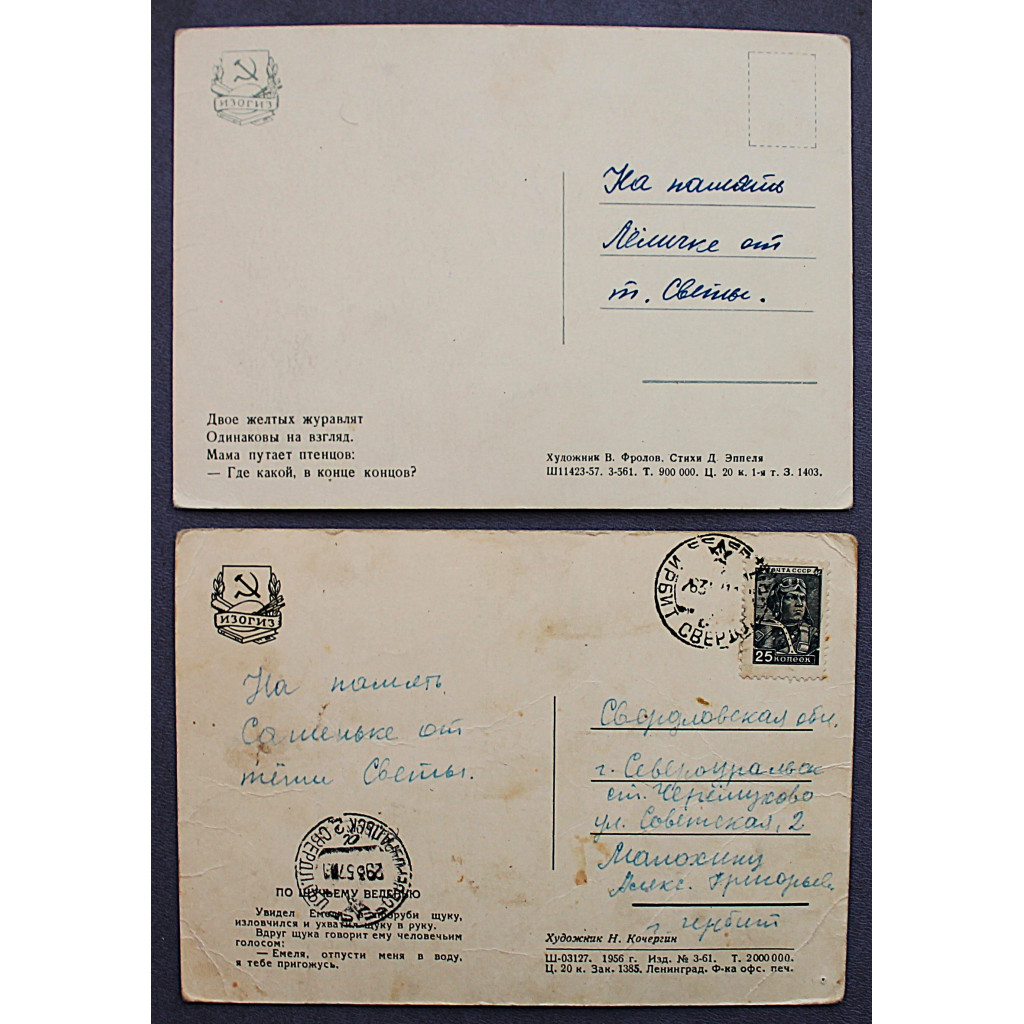 ИЗОГИЗ
На память
Лёличке от
т. Светы.
Двое желтых журавлят
Одинаковы на взгляд.
Мама путает птенцов:
— Где какой, в конце концов?
Художник В. Фролов. Стихи Д. Эппеля
Ш11423-57. З-561. Т. 900 000. Ц. 20 к. 1-я т. З. 1403.
ИЗОГИЗ
ИРБИТ СВЕРДЛ
ПОЧТА СССР
25 КОПЕЕК
На память
Сашеньке от
тёти Светы.
Свердловская обл.
г. Североуральск
ст. Черёмухово
ул. Советская, 2
Малохину
Алекс. Григорьев.
г. Ирбит
29 8 57
ПО ЩУЧЬЕМУ ВЕЛЕНИЮ
Увидел Емеля в проруби щуку,
изловчился и ухватил щуку в руку.
Вдруг щука говорит ему человечьим
голосом:
— Емеля, отпусти меня в воду,
я тебе пригожусь.
Художник Н. Кочергин
Ш-03127. 1956 г. Изд. № 3-61. Т. 2000000.
Ц. 20 к. Зак. 1385. Ленинград. Ф-ка офс. печ.